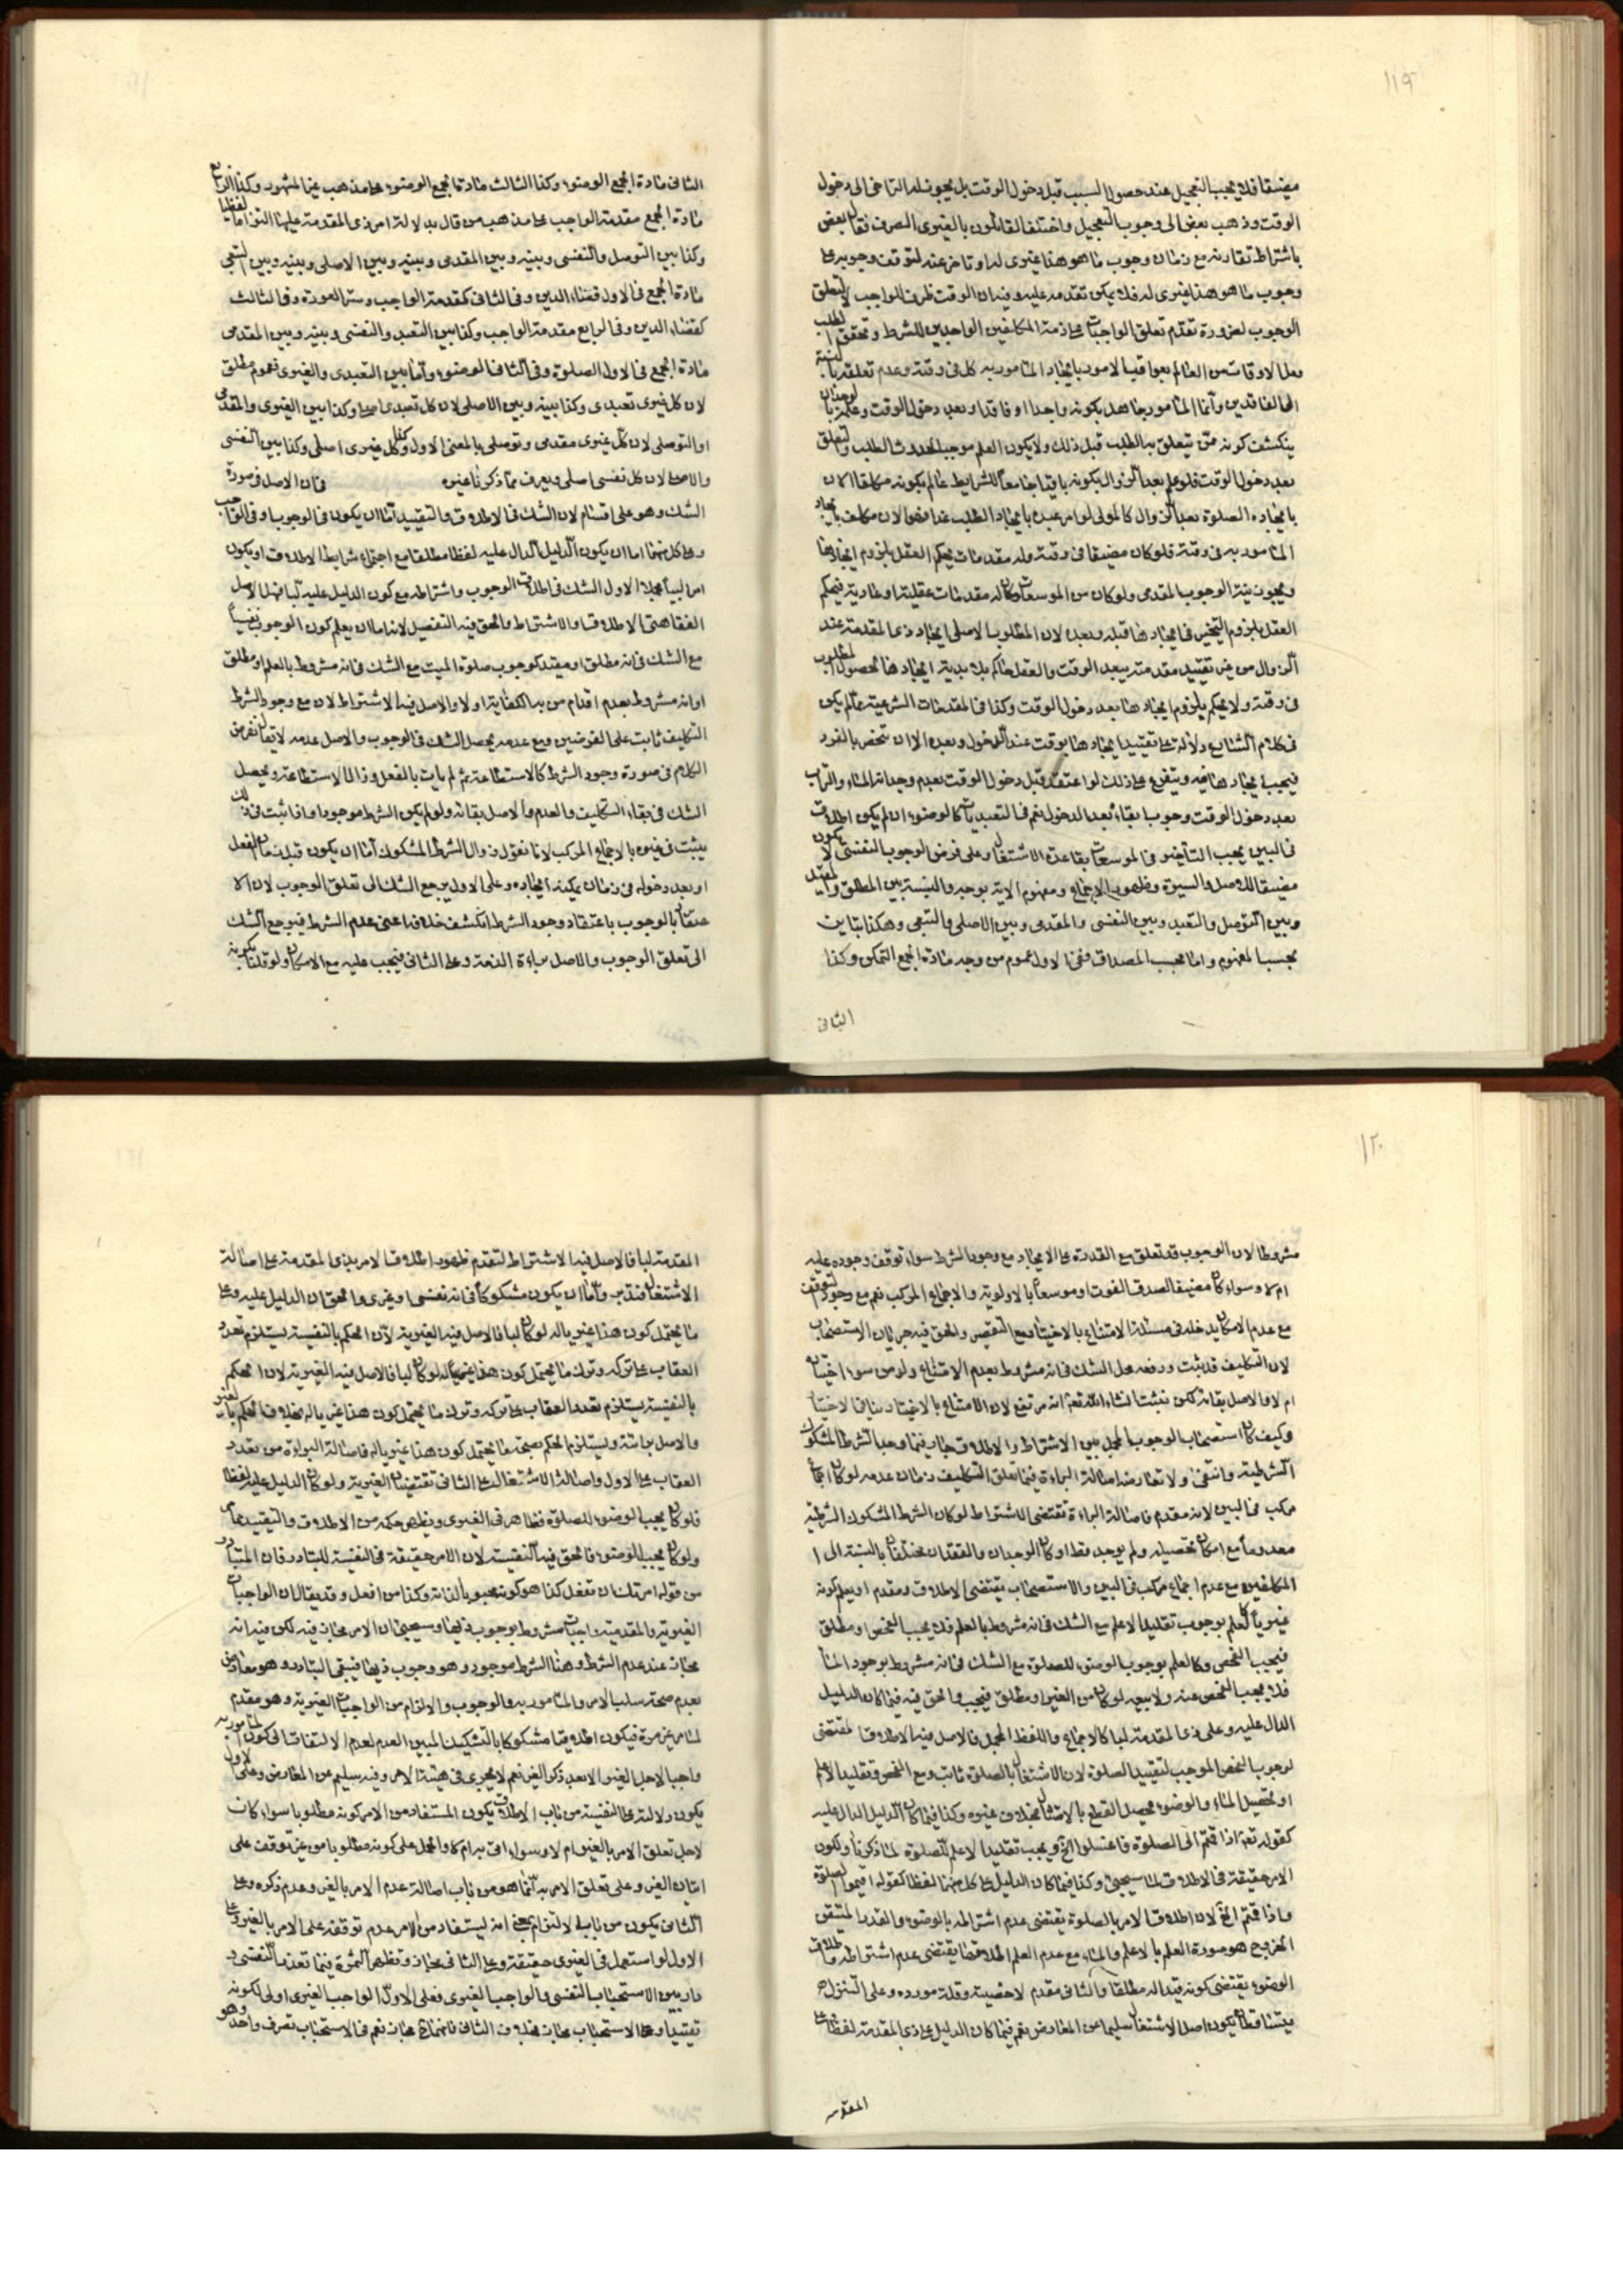 ١١٩
مضيقا فلا يجب التعجيل عند حصول السبب قبل دخول الوقت بل يجوز له التراخى الى دخول
الوقت وذهب بعض الى وجوب التعجيل واختلف القائلون بالغيرى الصرف فقال بعض
باشتراط تقارنه مع زمان وجوب ما هو هذا غيرى له او تاخر عنه لتوقف وجوبه على
وجوب ما هو هذا غيرى له فلا يمكن تقدمه عليه وفيه ان الوقت ظرف الواجب لا لتعلق
الوجوب لضرورة تقدم تعلق الواجبات على ذمة المكلفين الواجدين للشرط وتحقق الطلب
من العالم بعواقب الامور بايجاد المامور به كل فى وقته وعدم تعلقه بالنسبة
الى الفاقدين وانما المامور جاهل بكونه واجدا او فاقدا وبعد دخول الوقت وعلمه بالوجدان
ينكشف كونه ممن تعلق به الطلب قبل ذلك ولا يكون العلم موجبا لحدوث الطلب والتعلق
بعد دخول الوقت فلو علم بعد الزوال بكونه باقيا جامعا للشرايط عالم بكونه مكلفا الان
بايجاده الصلوة بعد الزوال كالمولى لو امر عبده بايجاد الطلب غدا فهو الان مكلف بايجاد
المامور به فى وقته فلو كان مضيقا فى وقته وله مقدمات يحكم العقل بلزوم ايجادها
ويجوز نية الوجوب المقدمى ولو كان من الموسعات وكان له مقدمات عقلية او عادية فيحكم
العقل بلزوم التخيير فى ايجادها قبله وبعده لان المطلوب الاصلى ايجاد ذى المقدمة عند
الزوال من غير تقييد مقدمته ببعد الوقت والعقل حاكم بلابدية ايجادها لحصول المطلوب
فى وقته ولا يحكم بلزوم ايجادها بعد دخول الوقت وكذا فى المقدمات الشرعية ما لم يكن
فى كلام الشارع دلالة على تقييد ايجادها بوقت عند الدخول وبعده الا ان تختص بالفرد
فيجب ايجادها فيه ويتفرع على ذلك لو اعتقد قبل دخول الوقت بعدم وجدانه الماء والتراب
بعد دخول الوقت وجوب ابقاء بعد الدخول نعم فى التعبديات كالوضوء ان لم يكن اطلاق
فى البين يجب التأخير فى الموسعات بقاعدة الاشتغال وعلى فرض الوجوب النفسى لا يكون
مضيقا للاصل والسيرة وظهور الاجماع ومفهوم الاية بوجه والنسبة بين المطلق والمقيد
وبين التوصل والتعبد وبين النفسى والمقدمى وبين الاصلى والتبعى وهكذا تباين
بحسب المفهوم واما بحسب المصداق ففى الاول عموم من وجه مادة الجمع التمكن وكذا
الثانى
الثانى مادة الجمع الوضوء وكذا الثالث مادة الجمع الوضوء على مذهب غير المشهور وكذا الرابع
مادة الجمع مقدمة الواجب على مذهب من قال بدلالة امر ذى المقدمة عليها التزاما لفظيا
وكذا بين التوصل والنفسى وبينه وبين المقدمى وبينه وبين الاصلى وبينه وبين التبعى
مادة الجمع فى الاول قضاء الدين وفى الثانى كمقدمة الواجب وستر العورة وفى الثالث
كقضاء الدين وفى الرابع مقدمة الواجب وكذا بين التعبد والنفسى وبينه وبين المقدمى
مادة الجمع فى الاول الصلوة وفى الثانى الوضوء واما بين التعبدى والغيرى فعموم مطلق
لان كل غيرى تعبدى وكذا بينه وبين الاصلى لان كل تعبدى اصلى وكذا بين الغيرى والمقدمى
او التوصلى لان كل غيرى مقدمى وتوصلى بالمعنى الاول وكل غيرى اصلى وكذا بين النفسى
والاصلى لان كل نفسى اصلى ويعرف مما ذكرنا غيره فان الاصل فى صورة
الشك وهو على اقسام لان الشك فى الاطلاق والتقييد اما ان يكون فى الوجوب او فى الواجب
وعلى كل منهما اما ان يكون الدليل الدال عليه لفظا مطلقا مع اجتماع شرايط الاطلاق او يكون
امرا لبيا مجملا الاول الشك فى اطلاق الوجوب واشتراطه مع كون الدليل عليه لبا فهل الاصل
الفقاهتى الاطلاق او الاشتراط والحق فيه التفصيل لانه اما ان يعلم كون الوجوب نفسيا
مع الشك فى انه مطلق او مقيد كوجوب صلوة الميت مع الشك فى انه مشروط بالعلم او مطلق
او انه مشروط بعدم اقدام من به الكفاية او لا والاصل فيه الاشتراط لان مع وجود الشرط
التكليف ثابت على الفرضين ومع عدمه يحصل الشك فى الوجوب والاصل عدمه لا يقال نفرض
الكلام فى صورة وجود الشرط كالاستطاعة ثم لم يات بالفعل وزال الاستطاعة ويحصل
الشك فى بقاء التكليف والعدم والاصل بقائه ولو لم يكن الشرط موجودا واذا ثبت فى ذلك
يثبت فى غيره بالاجماع المركب لانا نقول زوال الشرط المشكوك اما ان يكون قبل زمان الفعل
او بعد دخوله فى زمان يمكنه ايجاده وعلى الاول يرجع الشك الى تعلق الوجوب لان الا
عتقاد بالوجوب باعتقاد وجود الشرط انكشف خلافه اعنى عدم الشرط فيرجع الشك
الى تعلق الوجوب والاصل براءة الذمة وعلى الثانى فيجب عليه مع الامكان ولو قلنا بكونه
١٢٠
مشروطا لان الوجوب قد تعلق مع القدرة على الايجاد مع وجود الشرط سواء توقف وجوده عليه
ام لا وسواء كان مضيقا لصدق الفوت او موسعا بالاولوية والاجماع المركب نعم مع وجود التوقف
مع عدم الامكان يدخله فى مسئلة الامتناع بالاختيار مع التقصير والحق فيه جريان الاستصحاب
لان التكليف قد ثبت ورفعه محل الشك فى انه مشروط بعدم الامتناع ولو من سوء اختيار
ام لا والاصل بقائه لكن نثبت انشاء الله تعالى انه مرتفع لان الامتناع بالاختيار ينافى الاختيار
وكيف كان استصحاب الوجوب المجمل بين الاشتراط والاطلاق جار فيما وجد الشرط المشكوك
الشرطية وانتفى ولا تعارضه اصالة البراءة فيما تعلق التكليف زمان عدمه لو كان اجماع
مركب فى البين لانه مقدم فاصالة البراءة تقتضى الاشتراط لو كان الشرط المشكوك الشرطية
معدوما مع امكان تحصيله ولم يوجد قط او كان الوجدان والفقدان مختلفان بالنسبة الى ا
المكلفين مع عدم اجماع مركب فى البين والاستصحاب يقتضى الاطلاق ومقدم او يعلم كونه
غيريا كالعلم بوجوب تقليد الاعلم مع الشك فى انه مشروط بالعلم فلا يجب الفحص او مطلق
فيجب الفحص وكالعلم بوجوب الوضوء للصلوة مع الشك فى انه مشروط بوجود الماء
فلا يجب الفحص عنه ولا بيعه لو كان من الغير او مطلق فيجب والحق فيه فيما كان الدليل
الدال عليه وعلى ذى المقدمة لبا كالاجماع واللفظ المجمل فالاصل فيه الاطلاق لمقتضى
لوجوب الفحص الموجب لتقييد الصلوة لان الاشتغال بالصلوة ثابت ومع الفحص وتقليد الاعلم
او تحصيل الماء والوضوء يحصل القطع بالامتثال بخلاف غيره وكذا فيما كان الدليل الدال عليه
كقوله تعالى اذا قمتم الى الصلوة فاغسلوا الخ ويجب تقليد الاعلم للصلوة لما ذكرنا ولكون
الامر حقيقة فى الاطلاق لما سيجئ وكذا فيما كان الدليل على كل منهما لفظا كقوله اقيموا الصلوة
واذا قمتم الخ لان اطلاق الامر بالصلوة يقتضى عدم اشتراطه بالوضوء والقدر المتيقن
الخروج هو صورة العلم بالاعلم والماء مع عدم العلم اطلاقها يقتضى عدم اشتراطه واطلاق
الوضوء يقتضى كونه قيدا له مطلقا والثانى مقدم لاخصيته وقلة مورده وعلى التنزل
يتساقطان يكون اصل الاشتغال سليما من المعارض نعم فيما كان الدليل على ذى المقدمة لفظا على
المقدمة
المقدمة لبا فالاصل فيه الاشتراط لتقدم ظهور اطلاق الامر بذى المقدمة على اصالة
الاشتغال فتدبر واما ان يكون مشكوكا فى انه نفسى او غيرى والحق ان الدليل عليه وعلى
ما يحتمل كون هذا غيريا له لو كان لبا فالاصل فيه الغيرية لان الحكم بالنفسية يستلزم تعدد
العقاب على تركه وترك ما يحتمل كون هذا غيريا له لو كان لبا فالاصل فيه الغيرية لان الحكم
بالنفسية يستلزم تعدد العقاب على تركه وترك ما يحتمل كون هذا غيريا له بخلاف الحكم بالغيرية
والاصل برائته ويستلزم الحكم بصحة ما يحتمل كون هذا غيريا له فاصالة البراءة من تعدد
العقاب على الاول واصالة الاشتغال على الثانى تقتضيان الغيرية ولو كان الدليل عليه لفظا
فلو كان يجب الوضوء للصلوة فظاهر فى الغيرى ويظهر حكمه من الاطلاق والتقييد مما مر
ولو كان يجب الوضوء فالحق فيه النفسية لان الامر حقيقة فى النفسية للتبادر فان المتبادر
من قوله امرتك ان تفعل كذا هو كونه محبوبا لذاته وكذا من افعل وقد يقال ان الواجبات
الغيرية والمقدمية واجبات مشروط بوجوب ذيها وسيجئ ان الامر مجاز فيه لكن فيه انه
مجاز عند عدم الشرط وهذا الشرط موجود وهو وجوب ذيها فيبقى التبادر وهو معارض
بعدم صحة سلب الامر والمامور به والوجوب والالزام من الواجبات الغيرية وهو مقدم
لما مر غير مرة فيكون اطلاقها مشكوكا بالتشكيك المبين العدم لعدم الالتفات فى كون المامور به
واجبا لاجل الغير الا بعد ذكر الغير نعم لا يجرى فى هيئة الامر وفيه سليم عن المعارض وعلى الاول
يكون دلالته على النفسية من باب الاطلاق يكون المستفاد من الامر كونه مطلوبا سواء كان
لاجل تعلق الامر بالغير ام لا وسواء اقترن به ام لا والحمل على كونه مطلوبا من غير توقف على
اتيان الغير وعلى تعلق الامر به انما هو من باب اصالة عدم الامر بالغير وعدم ذكره وعلى
الثانى يكون من باب الالتزام بمعنى انه يستفاد من الامر عدم توقفه على الامر بالغير وعلى
الاول لو استعمل فى الغيرى حقيقة وعلى الثانى مجاز وتظهر الثمرة فيما تعذر النفسى و
دار بين الاستحباب النفسى والواجب الغيرى فعلى الاول الواجب الغيرى اولى لكونه
تقييدا وعلى الاستحباب مجاز بخلاف الثانى فانهما مجاز نعم فى الاستحباب تصرف واحد وهو